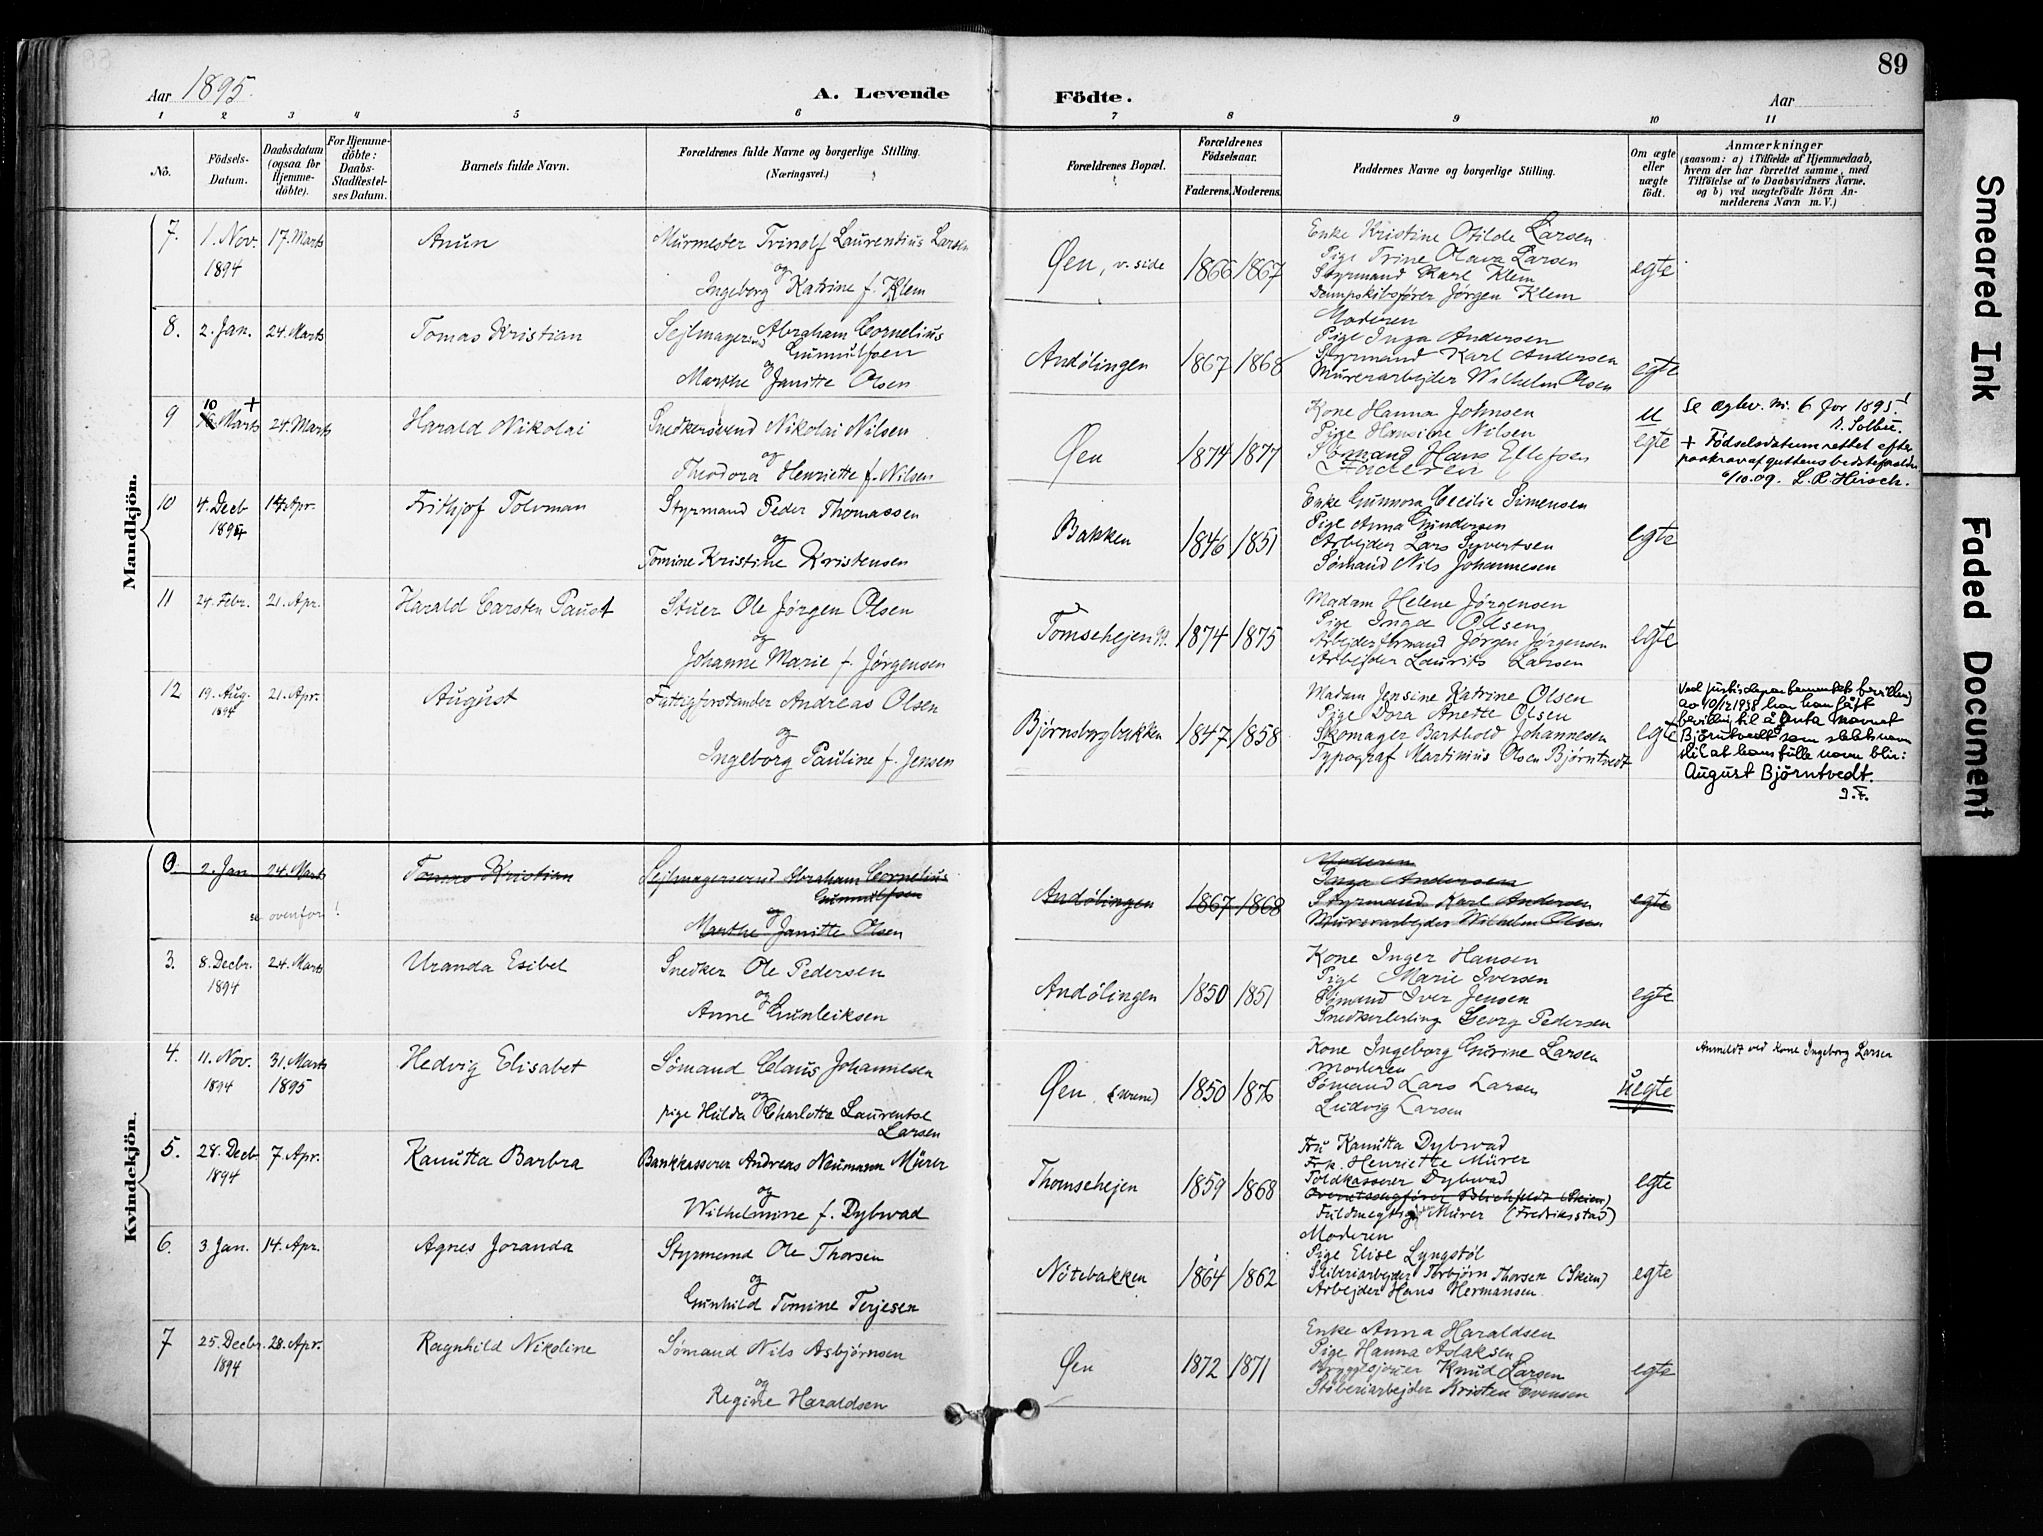 89
Aar 1895.
A. Levende Födte.
Aar
1 2 3 4 5 6 7 8 9 10 11
No.
Födsels-Datum.
Daabsdatum (ogsaa för Hjemme-döbte).
For Hjemme-döbte: Daabs-Stadfestel-ses Datum.
Barnets fulde Navn.
Forældrenes fulde Navne og borgerlige Stilling. (Næringsvei.)
Forældrenes Bopæl.
Forældrenes Födselsaar.
Faderens. Moderens.
Faddernes Navne og borgerlige Stilling.
Om ægte eller uægte födt.
Anmærkninger
(saasom: a) i Tilfælde af Hjemmedaab,
hvem der har forrettet samme, med
Tilföielse af to Daabsvidners Navne.
og b) ved uægtefödte Börn An-
melderens Navn m. V.)
Mandkjön.
7. 1. Nov. 1894 17. Marts
Anun
Murmester Trinolf Laurentius Larsen
og
Ingeborg Katrine f. Klem
Øen, v. side 1866 1867
Enke Kristine Otilde Larsen
Pige Trine Olava Larsen
Styrmand Karl Klem
Dampskibsfører Jørgen Klem
egte
8. 2. Jan. 24. Marts
Tomas Kristian
Sejlmagersvend Abraham Cornelius
Gunnulfsen
og
Marthe Janitte Olsen
Andølingen 1867 1868
Moderen
Pige Inga Andersen
Styrmand Karl Andersen
Murerarbejder Wilhelm Olsen
egte
9 10 + Marts 24. Marts
Harald Nikolai
Snedkersvend Nikolai Nilsen
og
Theodora Henriette f. Nilsen
Øen 1874 1877
Kone Hanna Johnsen
Pige Hansine Nilsen
Sømand Hans Ellefsen
Faderen
u
egte
Se ægtev. nr. 6 for 1895!
+ Födselsdatum rettet efter
paakrav af guttens bedsteforældre
6/10.09. L.R. Hirsch.
10 4. Decb 1894 14. Apr.
Frithjof Tolvman
Styrmand Peder Thomassen
og
Tomine Kristine Kristensen
Bakken 1846 1851
Enke Gunnora Cecilie Simensen
Pige Anna Gundersen
Arbejder Lars Syvertsen
Sømand Nils Johannesen
egte
11 24. Febr. 21. Apr.
Harald Carsten Paust
Stuer Ole Jørgen Olsen
og
Johanne Marie f. Jørgensen
Tomsehejen 1874 1875
Madam Helene Jørgensen
Pige Inga Olsen
Arbejdsformand Jørgen Jørgensen
Arbejder Laurits Larsen
egte
12 19. Aug. 1894 21. Apr.
August
Fattigforstander Andreas Olsen
og
Ingeborg Pauline f. Jensen
Bjørnsborgbakken 1847 1858
Madam Jensine Katrine Olsen
Pige Dora Anette Olsen
Skomager Barthold Johannesen
Typograf Martinius Olsen Bjørntvedt
egte
Ved justisdepartementets bevilling
av 10/12 1938 har han fått
bevilling til å anta navnet
Björntvedt som slektsnavn
slik at hans fulle navn blir:
August Björntvedt.
Kvindekjön.
2. Jan. 24. Marts
se ovenfor!
Tomas Kristian
Sejlmagersvend Abraham Cornelius
Gunnulfsen
og
Marthe Janitte Olsen
Andølingen 1867 1868
Moderen
Inga Andersen
Styrmand Karl Andersen
Murerarbejder Wilhelm Olsen
egte
3. 8. Decbr. 1894 24. Marts
Uranda Esibel
Snedker Ole Pedersen
og
Anne Gunleiksen
Andølingen 1850 1851
Kone Inger Hansen
Pige Marie Iversen
Sømand Iver Jensen
Snedkerlerling Georg Pedersen
egte
4. 11. Nov. 1894 31. Marts 1895
Hedvig Elisabet
Sømand Claus Johannesen
og
pige Hulda Charlotta Laurentse
Larsen
Øen 1850 1876
Kone Ingeborg Gurine Larsen
Moderen
Sømand Lars Larsen
Ludvig Larsen
uegte
Anmeldt ved kone Ingeborg Larsen
5. 28. Decb 1894 7. Apr.
Kanutta Barbra
Bankkasserer Andreas Neumann Mürer
og
Wilhelmine f. Dybwad
Thomsehejen 1859 1868
Fru Kanutta Dybwad
Frk. Henriette Mürer
Toldkasserer Dybwad
Overretssagfører Blichfeldt (Skien)
Fuldmegtig Mürer (Fredriksstad)
egte
6. 3. Jan. 14. Apr.
Agnes Joranda
Styrmand Ole Thorsen
og
Gunhild Tomine Terjesen
Nötebakken 1864 1862
Moderen
Pige Elise Lyngstøl
Sliberiarbejder Torbjørn Thorsen (Skien)
Arbejder Hans Hermansen
egte
7 25. Decbr. 1894 28. Apr.
Ragnhild Nikoline
Sømand Nils Asbjørnsen
og
Regine Haraldsen
Øen 1872 1871
Enke Anna Haraldsen
Pige Hanna Aslaksen
Knud Larsen
Støberiarbejder Kristen Evensen
egte
Smeared Ink
Faded Document